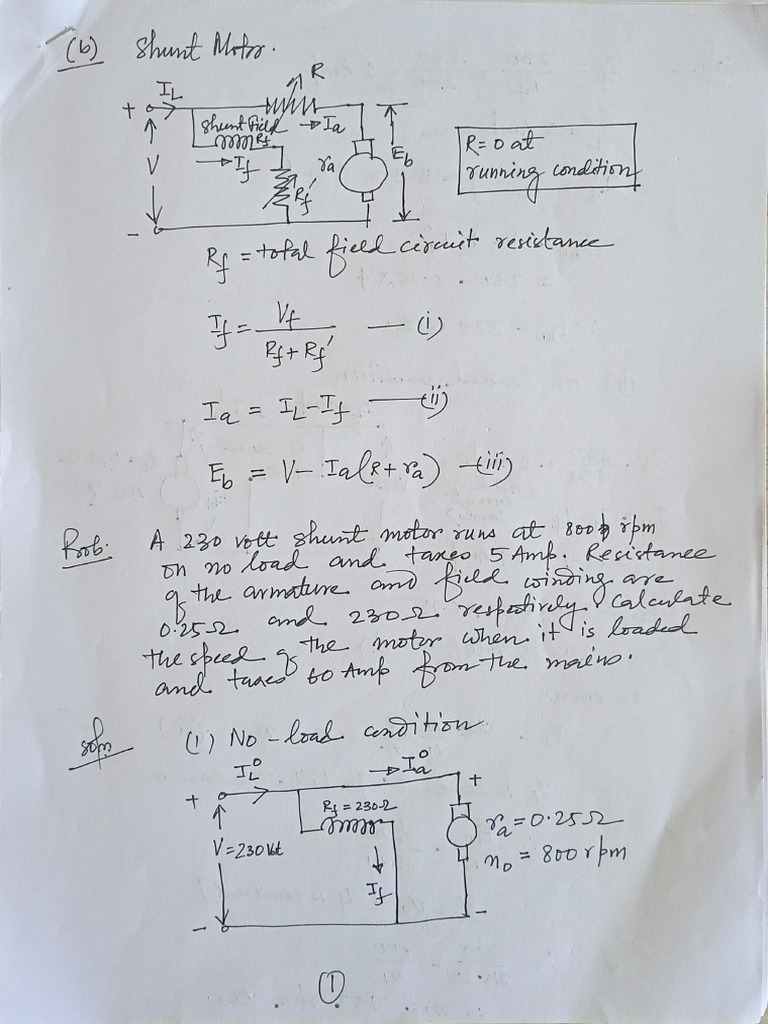 (b) Shunt Motor.
R
IL
+
Shunt Field
Rf
Ia
V
If
ra
Eb
Rf'
-
R = 0 at
running condition
Rf = total field circuit resistance
If = Vf / (Rf + Rf') — (i)
Ia = IL - If — (ii)
Eb = V - Ia(R + ra) — (iii)
Prob: A 230 volt shunt motor runs at 800 rpm
on no load and takes 5 Amp. Resistance
of the armature and field winding are
0.25Ω and 230Ω respectively. Calculate
the speed of the motor when it is loaded
and takes 60 Amp from the mains.
Soln. (1) No-load condition
IL⁰
Ia⁰
+
+
Rf = 230Ω
ra = 0.25Ω
V = 230 Volt
n₀ = 800 rpm
If
-
-
1